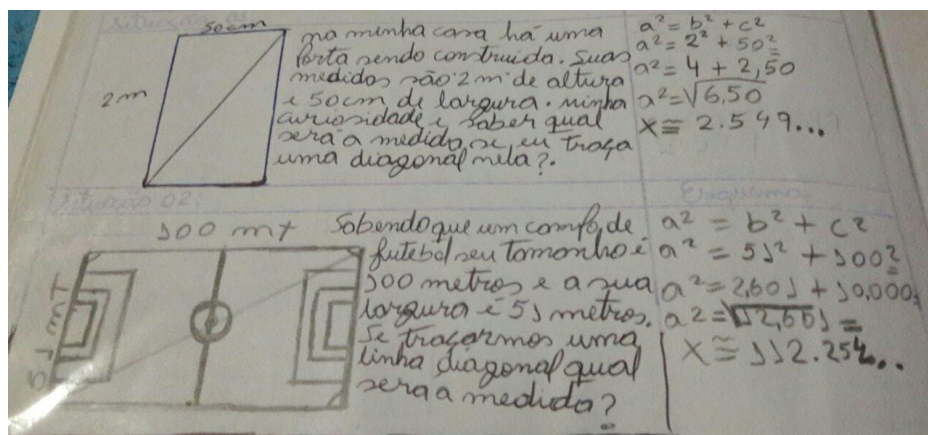 Situação 01:
50cm
2m
na minha casa há uma
Porta sendo construida. Suas
medidas são 2m de altura
e 50cm de largura. minha
curiosidade é saber qual
será a medida, se eu traça
uma diagonal nela?.
a² = b² + c²
a² = 2² + 50²
a² = 4 + 2,50
a² = √6,50
x ≅ 2.549...
Situação 02:
Esquema
100 mt
51 mt
Sabendo que um campo, de
futebol seu tamanho é
100 metros e a sua
largura é 51 metros.
Se traçarmos uma
linha diagonal qual
sera a medida?
a² = b² + c²
a² = 51² + 100²
a² = 2,601 + 10,000
a² = √12,601 =
x ≅ 112.254...